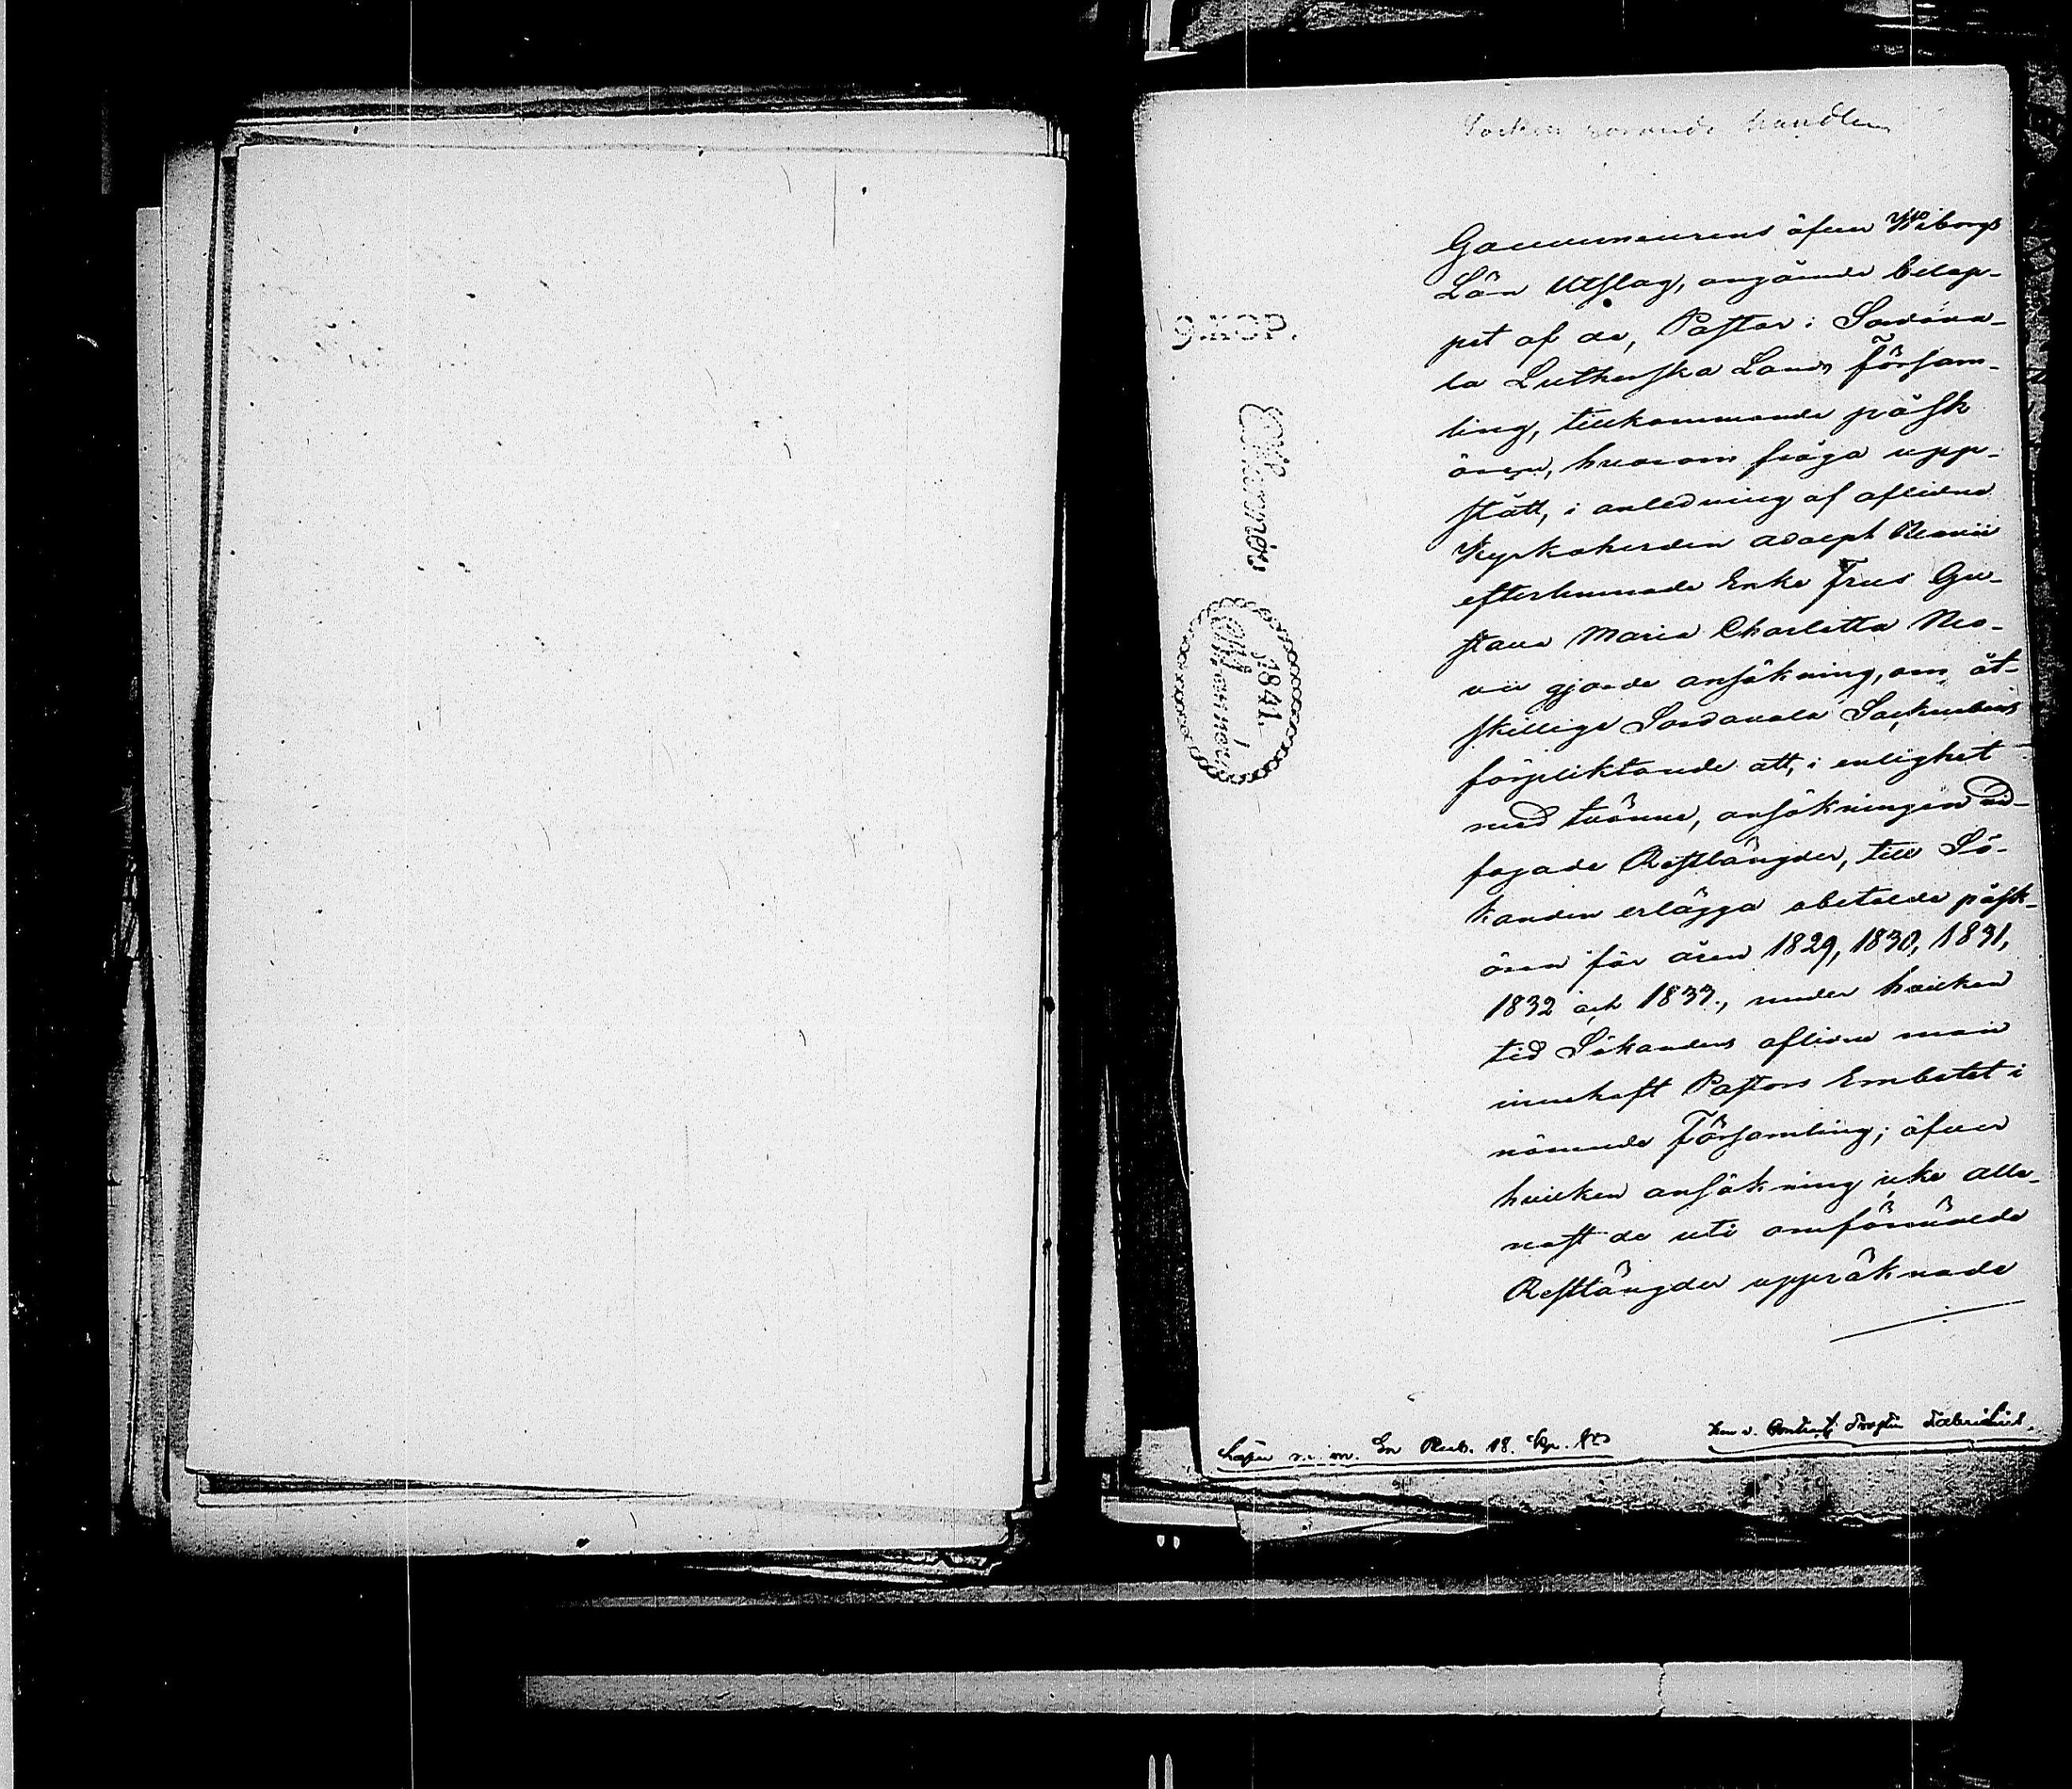 Socken rörande handlin
Gouverneurens öfver Wiborgs
Län Utslag, angående belop-
pet af de, Pastor i Sordava-
la Lutherska Lands Försam-
ling, tillkommande påsk
ören, hvarom fråga upp-
stått, i anledning af aflidne
Kyrkoherden Adolph Neovii
efterlemnade Enke Frus Gu-
stava Maria Charlotta Neo-
vii gjorde ansökning, om åt-
skillige Sordavala Sockneboers
förpliktande att, i enlighet
med tvänne, ansökningen vid-
fogade Restlängder, till Sö-
kanden erlägga obetalde påsk-
ören för åren 1829, 1830, 1831,
1832 och 1833., under hvilken
tid Sökandens aflidne man
innehaft Pastors Embetet i
nämnde Församling; öfver
hvilken ansökning icke alle-
nast de uti omförmälde
Restlängder uppräknade
9. KOP.
1841.
Lösen En Rub. 18. Kop. Sr
Prosten Fabricius